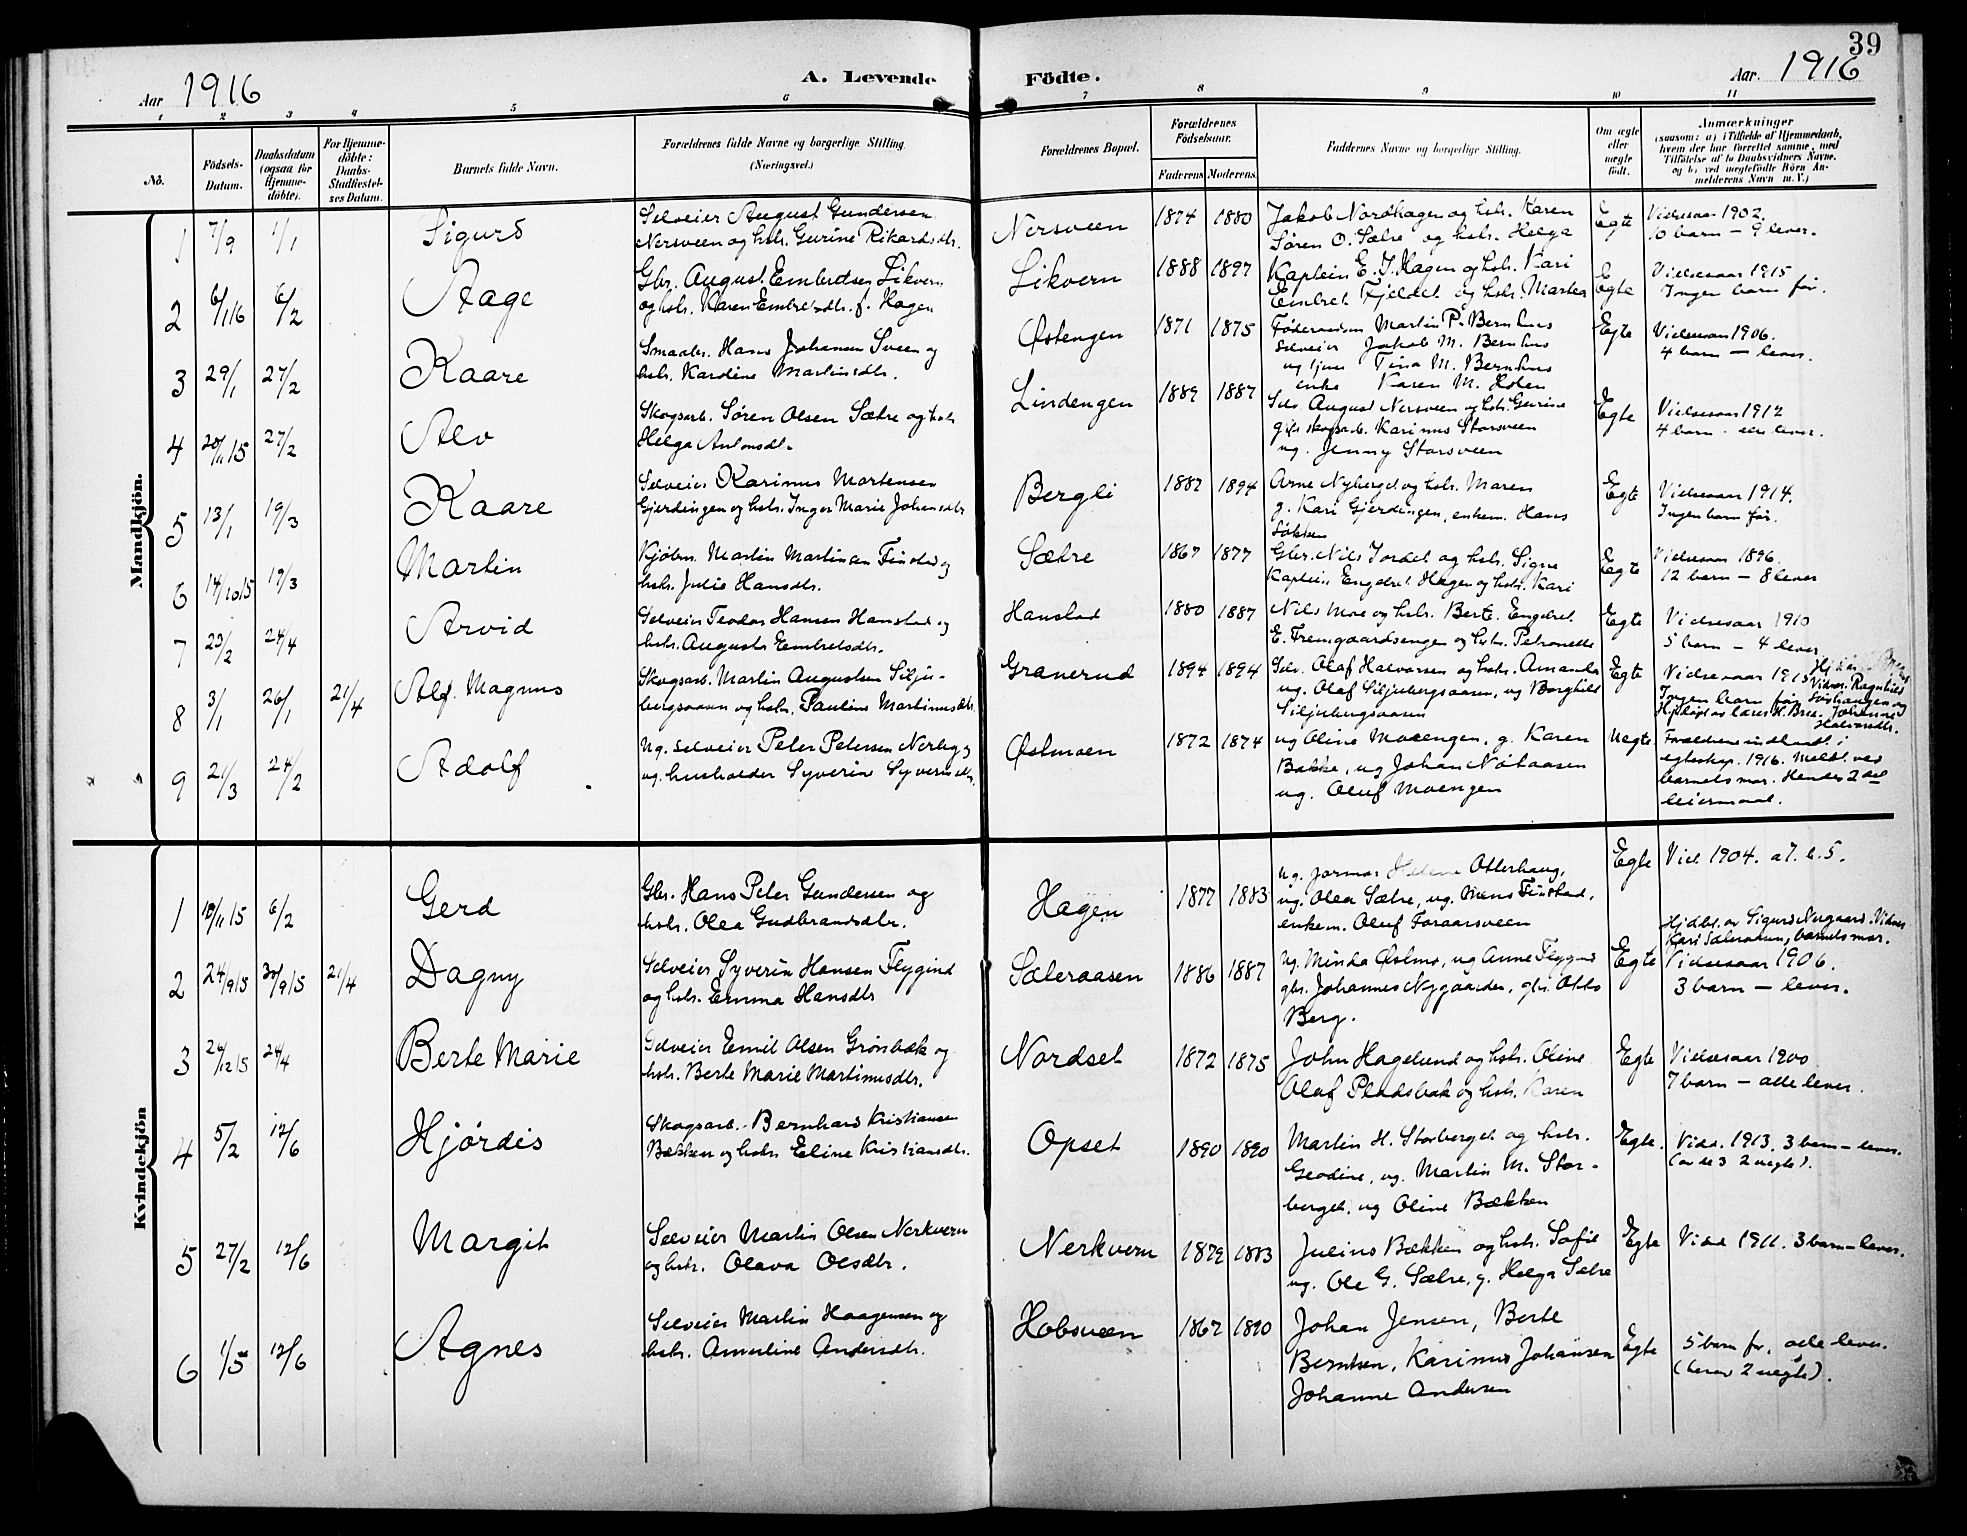 39
Aar 1916
A. Levende Födte.
Aar. 1916
1 2 3 4 5 6 7 8 9 10 11
No.
Födsels-
Datum.
Daabsdatum
(ogsaa for
Hjemme-
döbte).
For Hjemme-
döbte:
Daabs-
Stadfæstel-
ses Datum.
Barnets fulde Navn.
Forældrenes fulde Navne og borgerlige Stilling.
(Næringsvei.)
Forældrenes Bopæl.
Forældrenes
Födselsaar.
Faderens. Moderens.
Faddernes Navne og borgerlige Stilling.
Om ægte
eller
uægte
födt.
Anmærkninger
(saasom: a) i Tilfælde af Hjemmedaab,
hvem der har forrettet samme, med
Tilföielse af to Daabsvidners Navne,
og b) ved uægtefödte Börn An-
melderens Navn m. V.)
Mandkjön.
1 7/9 1/1 Sigurd
Selveier August Gundersen
Nersveen og hstr. Gurine Rikardsdtr.
Nersveen 1874 1880
Jakob Nordhagen og hstr. Karen
Søren O. Sætre og hstr. Helga
Egte
Vielsesaar 1902.
10 barn - 9 lever.
2 6/1 16 6/2 Aage
Gbr. August Embretsen Likvern
og hstr. Karen Embretsdtr. f. Hagen
Likvern 1888 1897
Kaptein E. J. Hagen og hstr. Kari
Embret Fjeldet og hstr. Martea
Egte
Vielsesaar 1915
Ingen barn før.
3 29/1 27/2 Kaare
Smaabr. Hans Johansen Sveen og
hstr. Karoline Martinsdtr.
Østengen 1871 1875
Føderaadsm Martin P. Bernhus
Selveier Jakob M. Bernhus
ug tjen Tina M. Bernhus
enke Karen M. Holen
Egte
Vielsesaar 1906.
4 barn - lever.
4 20/11 15 27/2 Alv
Skogsarb. Søren Olsen Sætre og hstr
Helga Antonsdtr.
Lindengen 1889 1887
Selv. August Nersveen og hstr. Gurine
gift skogsarb. Karinus Storsveen
ug. Jenny Storsveen
Egte
Vielsesaar 1912
4 barn - alle lever.
5 13/1 19/3 Kaare
Selveier Karinus Mortensen
Gjerdingen og hstr. Inger Marie Johansdtr
Bergli 1882 1894
Arne Nyberget og hstr. Maren
g. Kari Gjerdingen, enkem. Hans
Løkken
Egte
Vielsesaar 1914.
Ingen barn før.
6 14/10 15 19/3 Martin
Kjøbm. Martin Martinsen Finstad og
hstr. Julie Hansdtr.
Sætre 1867 1877
Gbr. Nils Jordet og hstr. Signe
Kaptein Engebret Hagen og hstr. Kari
Egte
Vielsesaar 1896.
12 barn - 8 lever
7 23/2 24/4 Arvid
Selveier Teodor Hansen Hanstad og
hstr. Augusta Embretsdtr.
Hanstad 1880 1887
Nils Moe og hstr. Berte. Engebret
E. Fremgaardsengen og hstr. Petronelle
Egte
Vielsesaar 1910
5 barn - 4 lever
8 3/1 26/1 21/4 Alf Magnus
Skogsarb. Martin Augustsen Silju-
bergsaasen og hstr. Pauline Martinusdtr.
Granerud 1894 1894
Selv. Olaf Halvorsen og hstr. Amanda
ug. Olaf Siljubergsaasen, ug Borghild
Siljubergsaasen
Egte
Vielsesaar 1915
Ingen barn før
Hjdøpt av lærer H. Bræ. Johanne
Halvorsdtr.
9 21/3 24/2 Adolf
Ug. selveier Peter Petersen Nerbeg og
ug. husholder Syverine Syversdtr.
Østmoen 1872 1874
ug Oline Moeengen, g. Karen
Bakke, ug Johan Nøtaasen
ug. Oluf Moengen
Uegte
Forældrene indtraadt i
egteskap. 1916. Meldt ved
barnets mor. Hendes 2det
leiermaal.
Kvindekjön
1 10/11 15 6/2 Gerd
Gbr. Hans Peter Gundersen og
hstr. Olea Gudbrandsdtr.
Hagen 1877 1883
Ug. jormor Helene Otterhaug,
ug. Olea Sætre, ug. Mons Finstad,
enkem. Oluf Foraarsveen
Egte
Viel. 1904. a 7. l. 5.
2 24/9 15 30/9 15 21/4 Dagny
Selveier Syverin Hansen Flygind
og hstr. Emma Hansdtr
Sæteraasen 1886 1887
Ug. Minda Østmo, ug Anne Flygind
gbr. Johannes Nygaarden, gbr. Otto
Berg.
Egte
Hjdbt. av Sigurd Nygaard. Vidner
Kari Sæteraasen, barnets mor.
Vielsesaar 1906.
3 barn - lever.
3 26/12 15 24/4 Berte Marie
Selveier Emil Olsen Grønbæk og
hstr. Berte Marie Martinusdtr.
Nordset 1872 1875
John Hagelund og hstr. Oline
Olaf Pladsbak og hstr. Karen
Egte
Vielsesaar 1900
7 barn - alle lever.
4 5/2 12/6 Hjørdis
Skogsarb. Bernhard Kristiansen
Bækken og hstr Eline Kristiansdtr.
Opset 1890 1890
Martin H. Storberget og hstr.
Geodine, ug. Martin M. Stor-
berget, ug Oline Bækken
Egte.
Viels. 1913. 3 barn - lever.
(av de 3 2 uegte).
5 27/2 12/6 Margit
Selveier Martin Olsen Nerkvern
og hstr. Olava Olsdtr.
Nerkvern 1879 1883
Julius Bækken og hstr. Sofie
ug. Ole G. Sætre, g. Helga Sætre
Egte
Viels 1911. 3 barn - lever.
6 1/5 12/6 Agnes
Selveier Martin Haagensen og
hstr. Amerline Andersdtr.
Hobsveen 1867 1890
Johan Jensen, Berte
Berntsen, Karinus Johansen
Johanne Andersen
Egte
5 barn før, alle lever.
(herav 2 uegte).